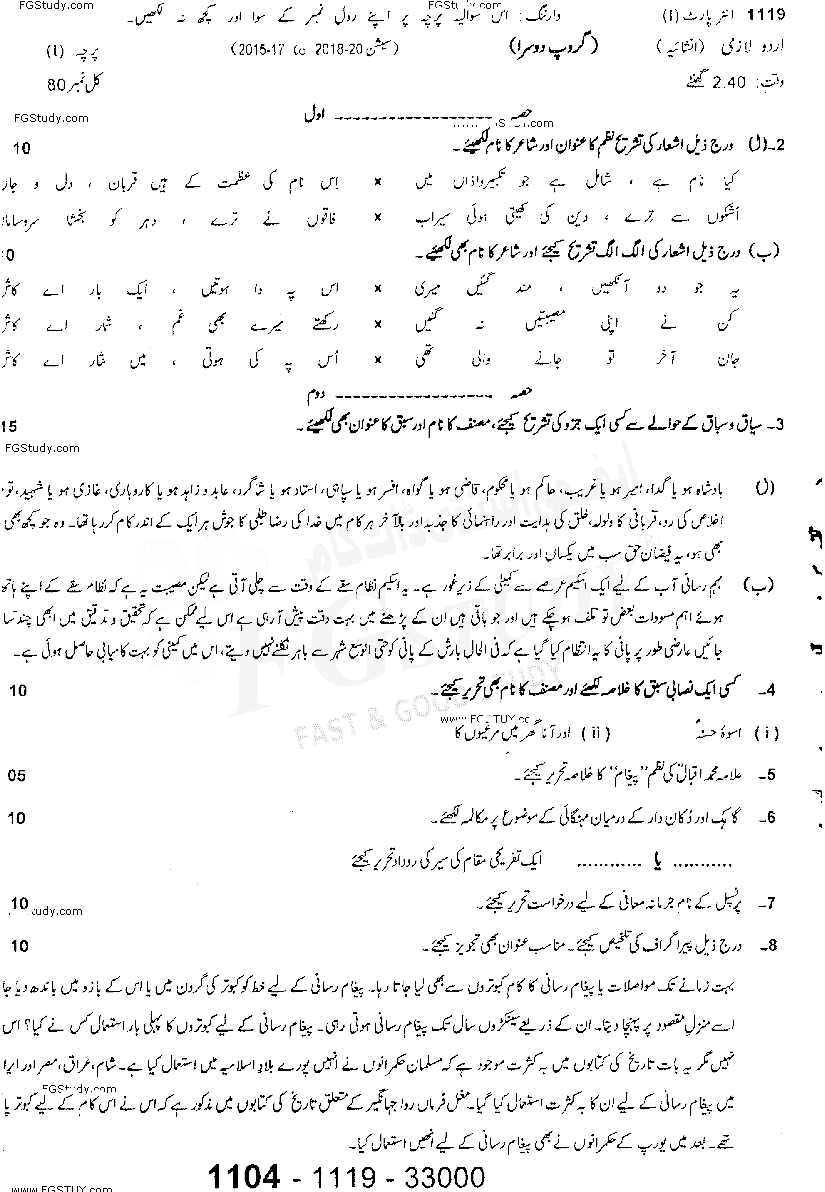 FGStudy.com FGStudy.com
1119 انٹر پارٹ (i) وارننگ: اس سوالیہ پرچہ پر اپنے رول نمبر کے سوا اور کچھ نہ لکھیں۔
اردو لازمی (انشائیہ) (گروپ دوسرا) (سیشن 2015-17 to 2018-20) پرچہ (i)
وقت: 2.40 گھنٹے کل نمبر 80
FGStudy.com حصہ ------------------- اول
2۔ (ل) درج ذیل اشعار کی تشریح نظم کا عنوان اور شاعر کا نام لکھیئے۔ 10
کیا نام ہے ، شامل ہے جو تکبیر و اذاں میں × اِس نام کی عظمت کے ہیں قربان ، دل و جاں
اشکوں سے ترے ، دین کی کھیتی ہوئی سیراب × فاقوں نے ترے ، دہر کو بخشا سروساماں
(ب) درج ذیل اشعار کی الگ الگ تشریح کیجئے اور شاعر کا نام بھی لکھیئے۔ 0
یہ جو دو آنکھیں ، مند گئیں میری × اس پہ وا ہوتیں ، ایک بار اے کاش
کن نے اپنی مصیبتیں نہ گئیں × رکھتے میرے بھی غم ، شمار اے کاش
جان آخر تو جانے والی تھی × اُس پہ کی ہوتی ، میں نثار اے کاش
حصہ ------------------- دوم
3۔ سیاق و سباق کے حوالے سے کسی ایک جزو کی تشریح کیجئے، مصنف کا نام اور سبق کا عنوان بھی لکھیئے۔ 15
FGStudy.com
(ل) بادشاہ ہو یا گدا، امیر ہو یا غریب، حاکم ہو یا محکوم، قاضی ہو یا گواہ، افسر ہو یا سپاہی، استاد ہو یا شاگرد، عابد و زاہد ہو یا کاروباری، غازی ہو یا شہید، تو
اخلاص کی رو، قربانی کا ولولہ، خلق کی ہدایت اور راہنمائی کا جذبہ اور بالآخر ہر کام میں خدا کی رضا طلبی کا جوش ہر ایک کے اندر کام کر رہا تھا۔ وہ جو کچھ بھی
بھی ہو، یہ فیضان حق سب میں یکساں اور برابر تھا۔
(ب) بہم رسانی آب کے لیے ایک اسکیم عرصے سے کمیٹی کے زیر غور ہے۔ یہ اسکیم نظام سقے کے وقت سے چلی آتی ہے لیکن مصیبت یہ ہے کہ نظام سقے کے اپنے ہاتھ
ہوئے اہم مسودات بعض تو تلف ہو چکے ہیں اور جو باقی ہیں ان کے پڑھنے میں بہت دقت پیش آ رہی ہے اس لیے ممکن ہے کہ تحقیق و تدقیق میں ابھی چند سا
جائیں عارضی طور پر پانی کا یہ انتظام کیا گیا ہے کہ فی الحال بارش کے پانی کو حتی الوسع شہر سے باہر نکلنے نہیں دیتے، اس میں کمیٹی کو بہت کامیابی حاصل ہوئی ہے۔
FGSTUDY
FAST & GOOD STUDY
4۔ کسی ایک نصابی سبق کا خلاصہ لکھیئے اور مصنف کا نام بھی تحریر کیجئے۔ 10
(i) اسوۂ حسنہ (ii) اور آنا گھر میں مرغیوں کا
5۔ علامہ محمد اقبال کی نظم "پیغام" کا خلاصہ تحریر کیجئے۔ 05
6۔ گاہک اور دُکان دار کے درمیان مہنگائی کے موضوع پر مکالمہ لکھیئے۔ 10
........... یا ........... ایک تفریحی مقام کی سیر کی روداد تحریر کیجئے
7۔ پرنسپل کے نام جرمانہ معافی کے لیے درخواست تحریر کیجئے۔ 10
8۔ درج ذیل پیراگراف کی تلخیص کیجئے۔ مناسب عنوان بھی تجویز کیجئے۔ 10
بہت زمانے تک مواصلات یا پیغام رسانی کا کام کبوتروں سے بھی لیا جاتا رہا۔ پیغام رسانی کے لیے خط کو کبوتر کی گردن میں یا اس کے بازو میں باندھ دیا جا
اسے منزلِ مقصود پر پہنچا دیتا۔ ان کے ذریعے سینکڑوں سال تک پیغام رسانی ہوتی رہی۔ پیغام رسانی کے لیے کبوتروں کا پہلی بار استعمال کس نے کیا؟ اس
نہیں مگر یہ بات تاریخ کی کتابوں میں بہ کثرت موجود ہے کہ مسلمان حکمرانوں نے انہیں پورے بلادِ اسلامیہ میں استعمال کیا ہے۔ شام، عراق، مصر اور ایرا
میں پیغام رسانی کے لیے ان کا بہ کثرت استعمال کیا گیا۔ مغل فرماں روا جہانگیر کے متعلق تاریخ کی کتابوں میں مذکور ہے کہ اس نے اس کام کے لیے کبوتر پا
تھے۔ بعد میں یورپ کے حکمرانوں نے بھی پیغام رسانی کے لیے انھیں استعمال کیا۔
1104 - 1119 - 33000
www.FGSTUY.com